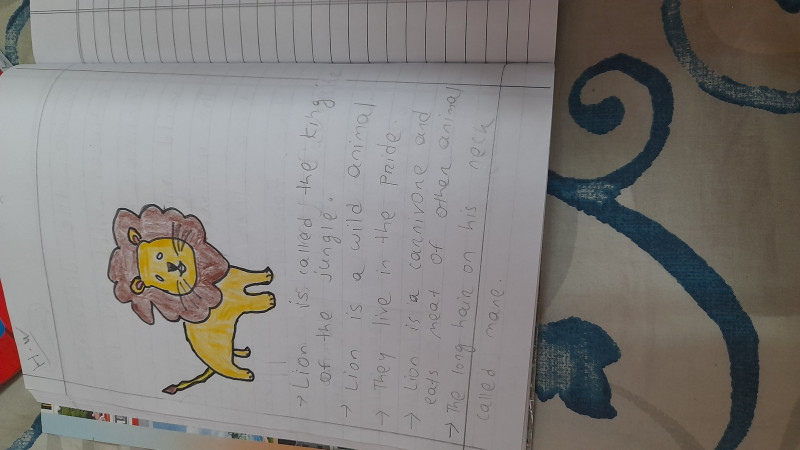 H/W
→ Lion is called the king
of the jungle.
→ Lion is a wild animal
→ They live in the pride.
→ Lion is a carnivore and
eats meat of other animal
→ The long hair on his neck
called mane.